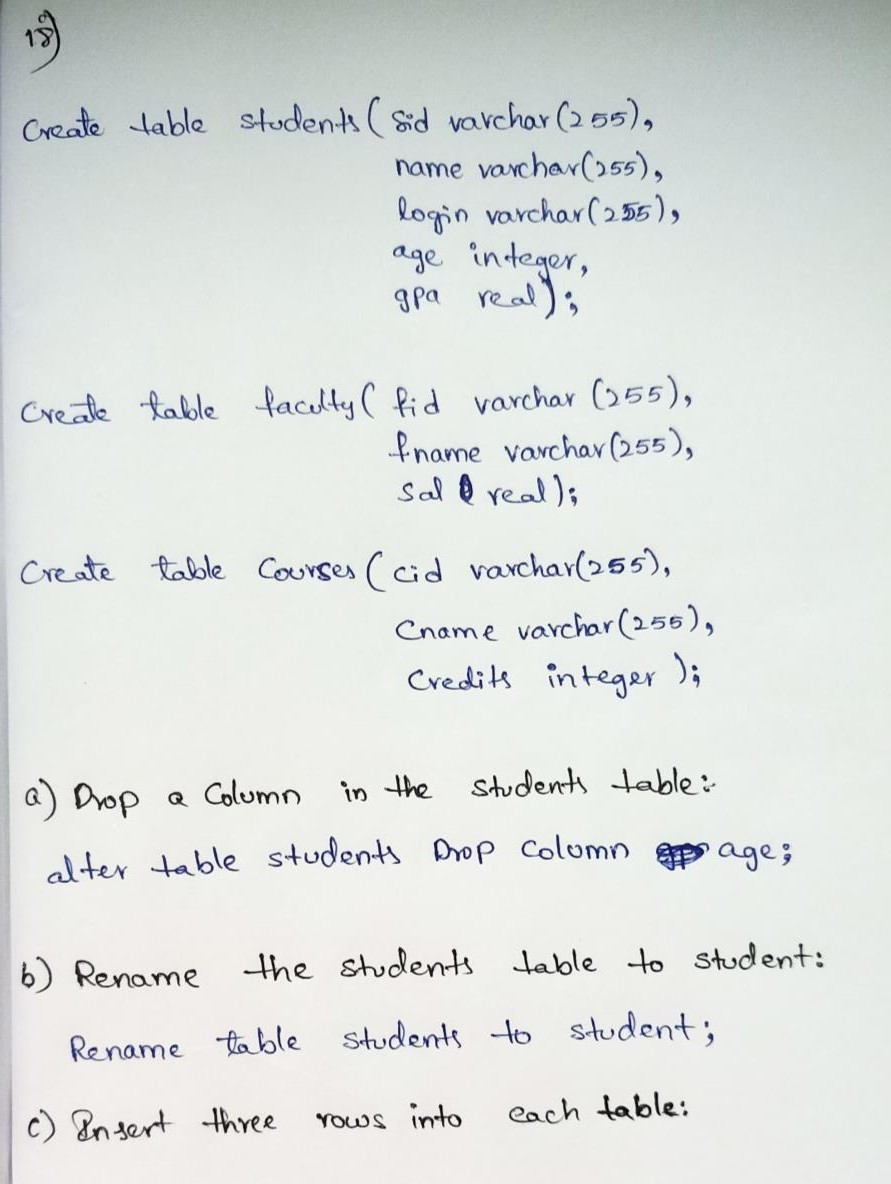 18)
Create table students ( sid varchar (255),
name varchar(255),
login varchar(255),
age integer,
gpa real);
Create table faculty ( fid varchar (255),
fname varchar(255),
sal real);
Create table Courses ( cid varchar(255),
Cname varchar(255),
Credits integer );
a) Drop a Column in the students table:-
alter table students Drop Column age;
b) Rename the students table to student:
Rename table students to student;
c) Insert three rows into each table: